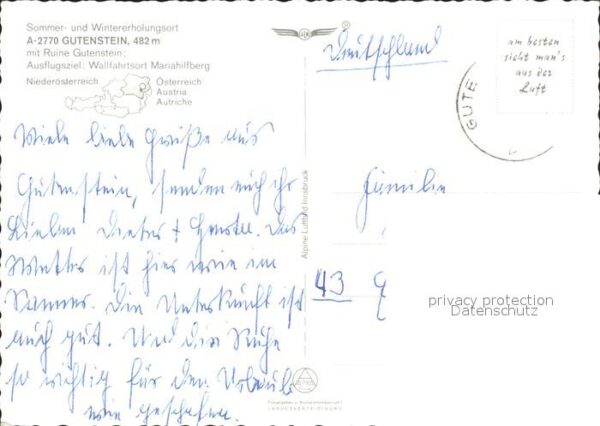 Sommer- und Wintererholungsort
A-2770 GUTENSTEIN, 482 m
mit Ruine Gutenstein;
Ausflugsziel: Wallfahrtsort Mariahilfberg
Niederösterreich
Österreich
Austria
Autriche
Viele liebe Grüße aus
Gutenstein, senden euch ihr
Lieben Dieter + . Das
Wetter ist hier wie im
Sommer. Die Unterkunft ist
auch gut. Und die Ruhe
so richtig für den Urlaub
wie geschaffen.
Alpine Luftbild Innsbruck
Deutschland
am besten
sieht man's
aus der
Luft
GUTE
Familie
43
privacy protection
Datenschutz
LANDESVERTEIDIGUNG